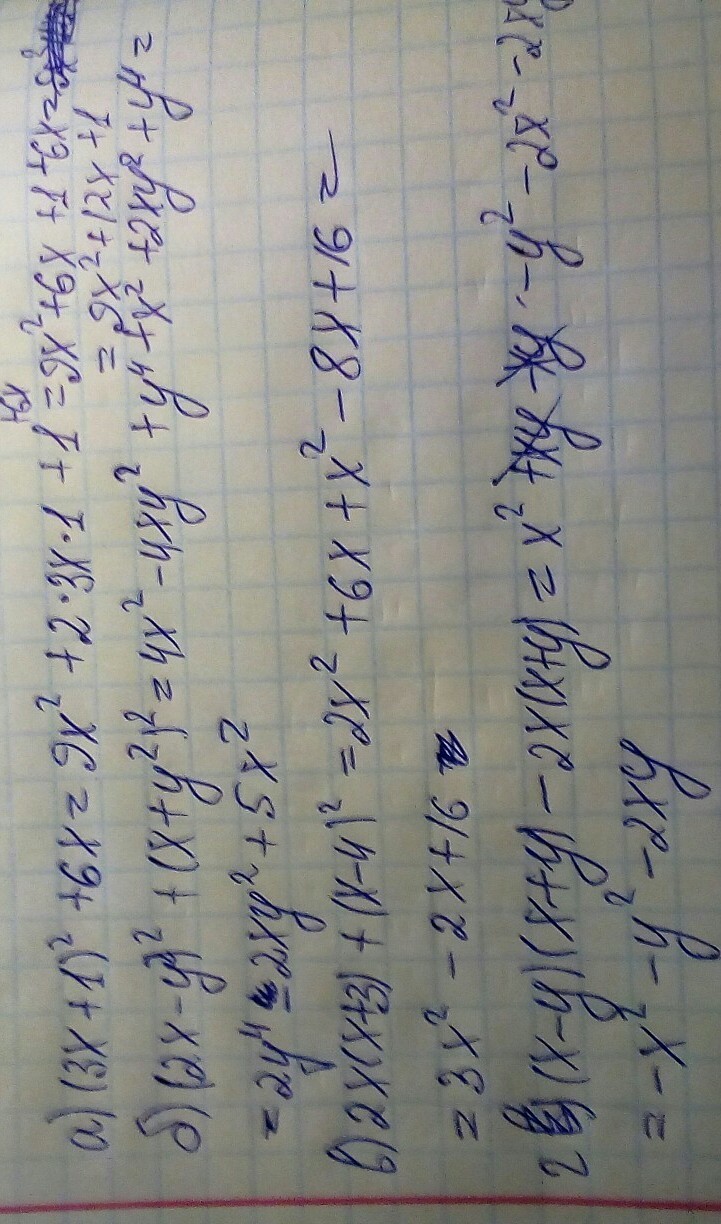 а) (3x+1)² +6x = 9x² + 2·3x·1 + 1 +6x = 9x² +6x +1 +6x =
= 9x² +12x +1
б) (2x-y²)² + (x+y²)² = 4x² - 4xy² + y⁴ + x² + 2xy² + y⁴ =
= 2y⁴ - 2xy² + 5x²
в) 2x(x+3) + (x-4)² = 2x² + 6x + x² - 8x + 16 =
= 3x² - 2x + 16
г) (x-y)(x+y) - 2x(x+y) = x² +xy -xy - y² - 2x² - 2x
= -x² - y² - 2xy